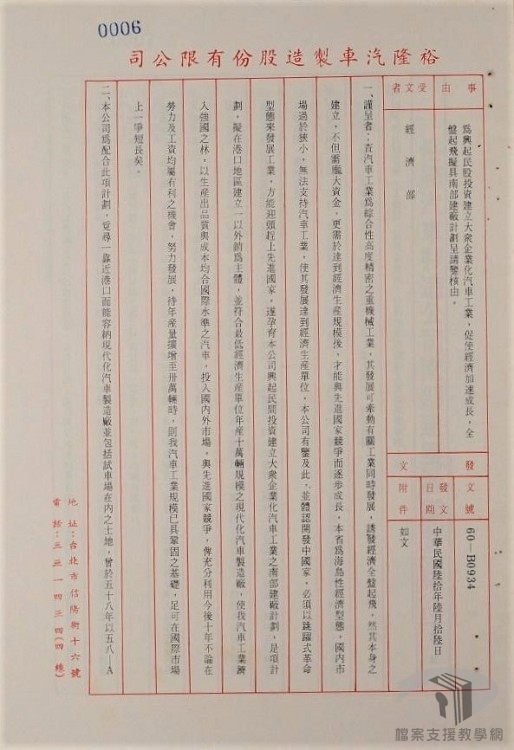 0006
裕隆汽車製造股份有限公司
事由
爲興起民股投資建立大衆企業化汽車工業，促使經濟加速成長，全
盤起飛擬具南部建廠計劃呈請鑒核由。
受文者
經濟部
發文
文號
60-B0934
發文日期
中華民國陸拾年陸月拾陸日
附件
如文
一、謹呈者：查汽車工業爲綜合性高度精密之重機械工業，其發展可牽動有關工業同時發展，誘發經濟全盤起飛，然其本身之
建立，不但需龐大資金，更需於達到經濟生產規模後，才能與先進國家競爭而逐步成長，本省爲海島性經濟型態，國內市
場過於狹小，無法支持汽車工業，使其發展達到經濟生產單位，本公司有鑒及此，並體認開發中國家，必須以跳躍式革命
型態來發展工業，方能迎頭趕上先進國家，遂孕育本公司興起民間投資建立大衆企業化汽車工業之南部建廠計劃，是項計
劃，擬在港口地區建立一以外銷爲主體，並符合最低經濟生產單位年産十萬輛規模之現代化汽車製造廠，使我汽車工業躋
入強國之林，以生產出品質與成本均合國際水準之汽車，投入國內外市場，與先進國家競爭，俾充分利用今後十年不論在
努力及工資均屬有利之機會，努力發展，待年產量擴增至卅萬輛時，則我汽車工業規模已具鞏固之基礎，足可在國際市場
上一爭短長矣。
二、本公司爲配合此項計劃，覓尋一靠近港口而能容納現代化汽車製造廠並包括試車場在內之土地，曾於五十八年以五八—A
地址：台北市信陽街十六號
電話：三三一四三三四(四線)
檔案支援教學網